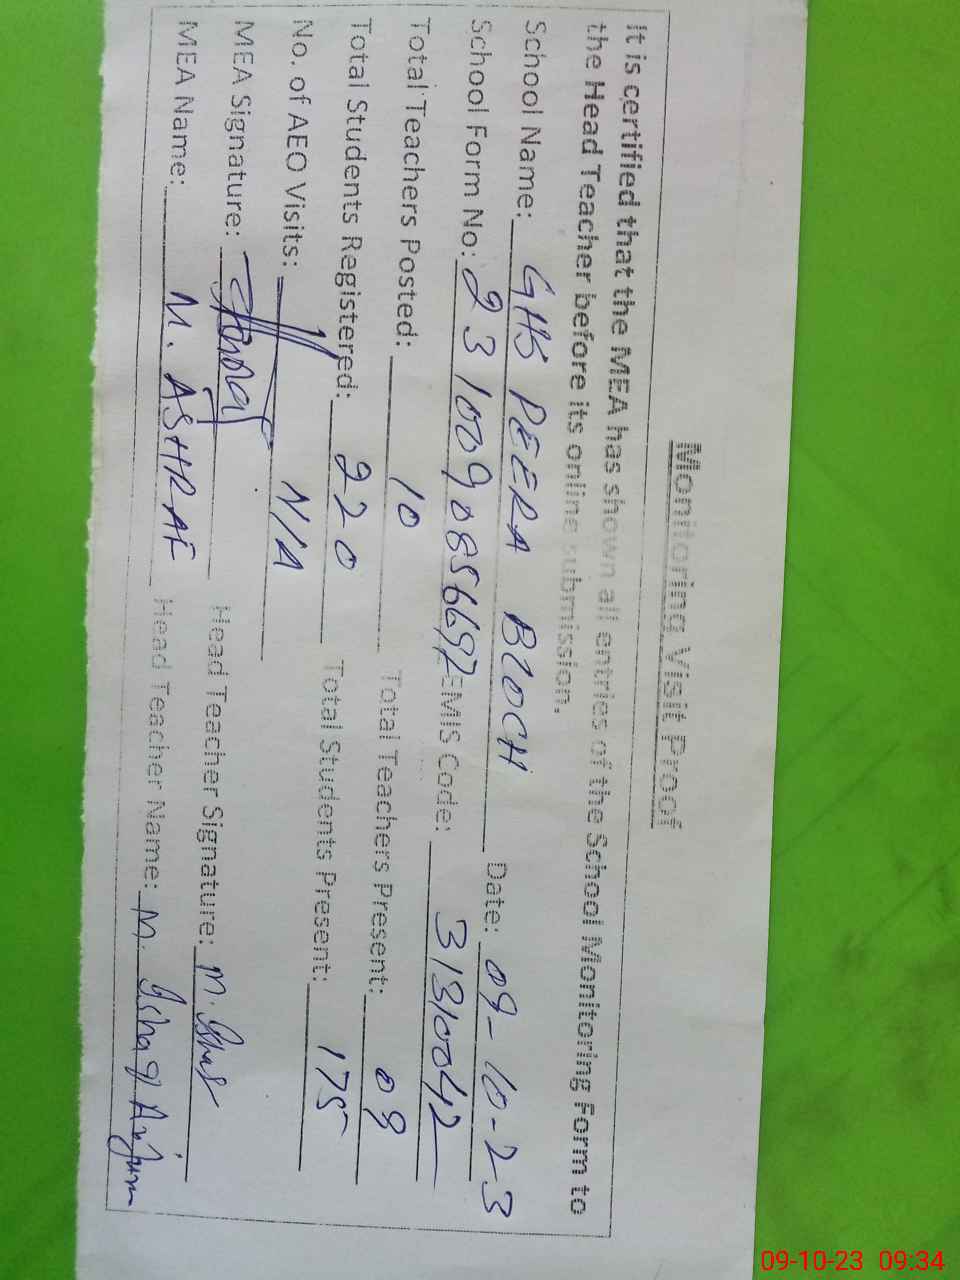 Monitoring Visit Proof
It is certified that the MEA has shown all entries of the School Monitoring Form to
the Head Teacher before its online submission.
School Name: GHS PEERA BLOCH Date: 09-10-23
School Form No: 231009085669 EMIS Code: 31310042
Total Teachers Posted: 10 Total Teachers Present: 08
Total Students Registered: 220 Total Students Present: 175
No. of AEO Visits: N/A
MEA Signature: Head Teacher Signature: M.
MEA Name: M. ASHRAF Head Teacher Name: M. Ishaq Anjum
09-10-23 09:34